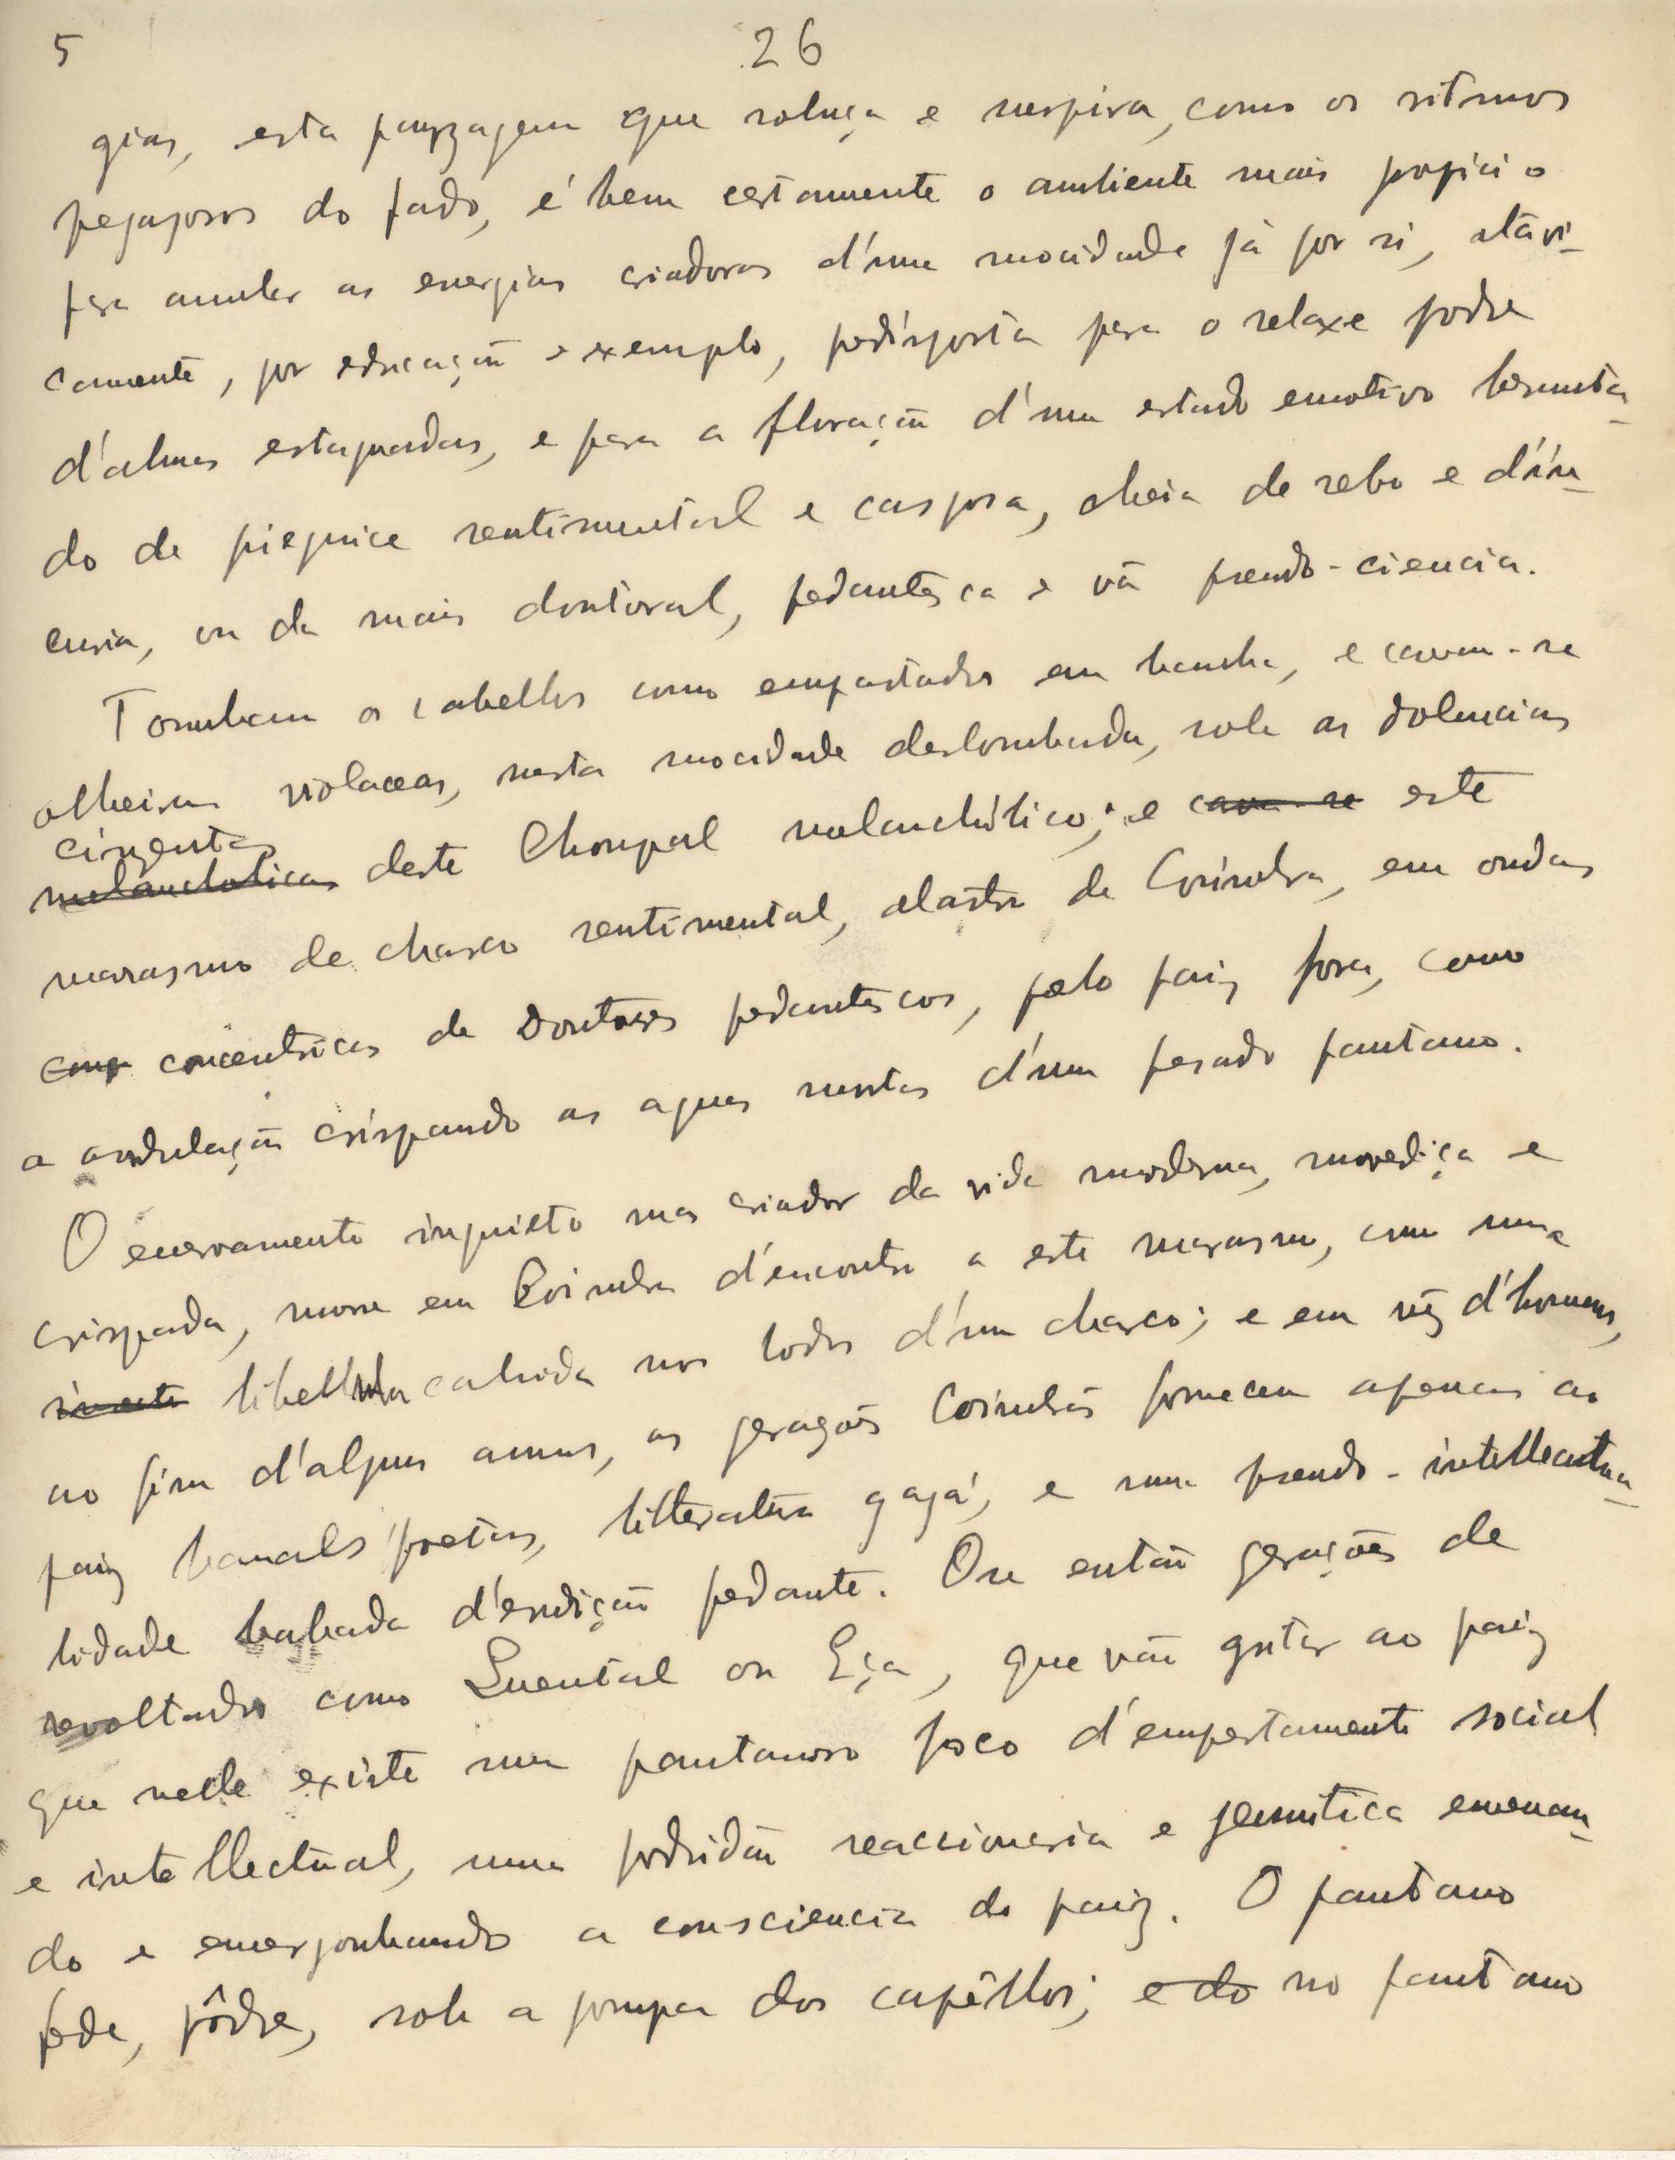 5
26
gias, esta payzagem que soluça e suspira, como os ritmos
pegajosos do fado, é bem certamente o ambiente mais propicio
para annular as energias criadoras d'uma mocidade já por si, atavi-
camente, por educação e exemplo, predisposta para o relaxe podre
d'almas estagnadas, e para a floração d'um estado emotivo besunta-
do de pieguice sentimental e casposa, cheia de sebo e d'in-
curia, ou da mais doutoral, pedantesca e vã pseudo-ciencia.
Tombam os cabellos como empastados em banha, e cavam-se
olheiras violaceas, nesta mocidade deslombada, sob as dolencias
cinzentas
melancholicas deste Choupal melancholico; e cava-se este
marasmo de charco sentimental, alastra de Coimbra, em ondas
conp concentricas de Doutores pedantescos, pelo paiz fora, como
a ondulação crispando as aguas mortas d'um pesado pantano.
O enervamento inquieto mas criador da vida moderna, movediça e
crispada, morre em Coimbra d'encontro a este marasmo, como uma
insecto libellula cahida nos lodos d'um charco; e em vêz d'homens,
ao fim d'alguns annos, as gerações Coimbrãs fornecem apenas ao
paiz banaes poetas, litteratura gagá, e uma pseudo-intellectua-
lidade babada d'erudição pedante. Ou então gerações de
revoltados como Quental ou Eça, que vão gritar ao paiz
que nelle existe um pantanoso foco d'empestamento social
e intellectual, uma podridão reaccionaria e jesuitica envenenan-
do e envergonhando a consciencia do paiz. O pantano
fede, pôdre, sob a pompa dos capêllos; e do no pantano